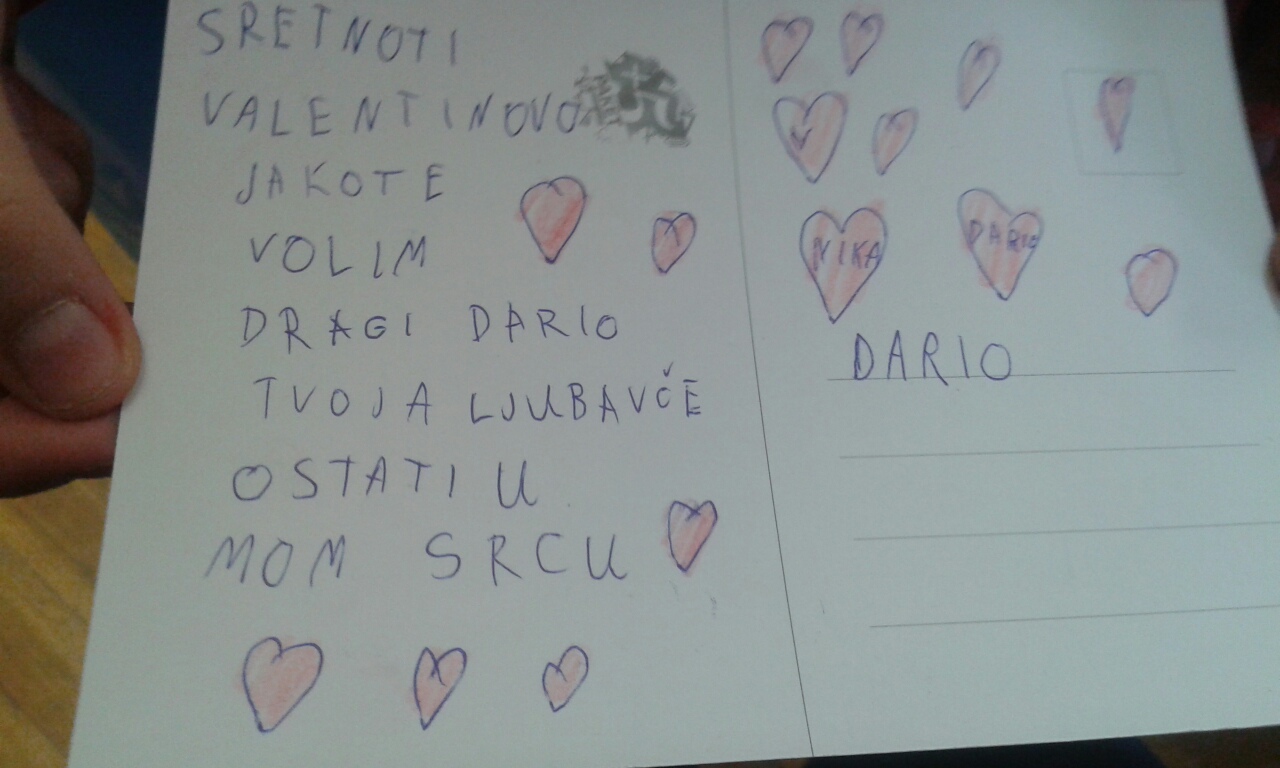 SRETNOTI
VALENTINOVO
JAKOTE
VOLIM
DRAGI DARIO
TVOJA LJUBAVČE
OSTATI U
MOM SRCU
NIKA
DARIO
DARIO